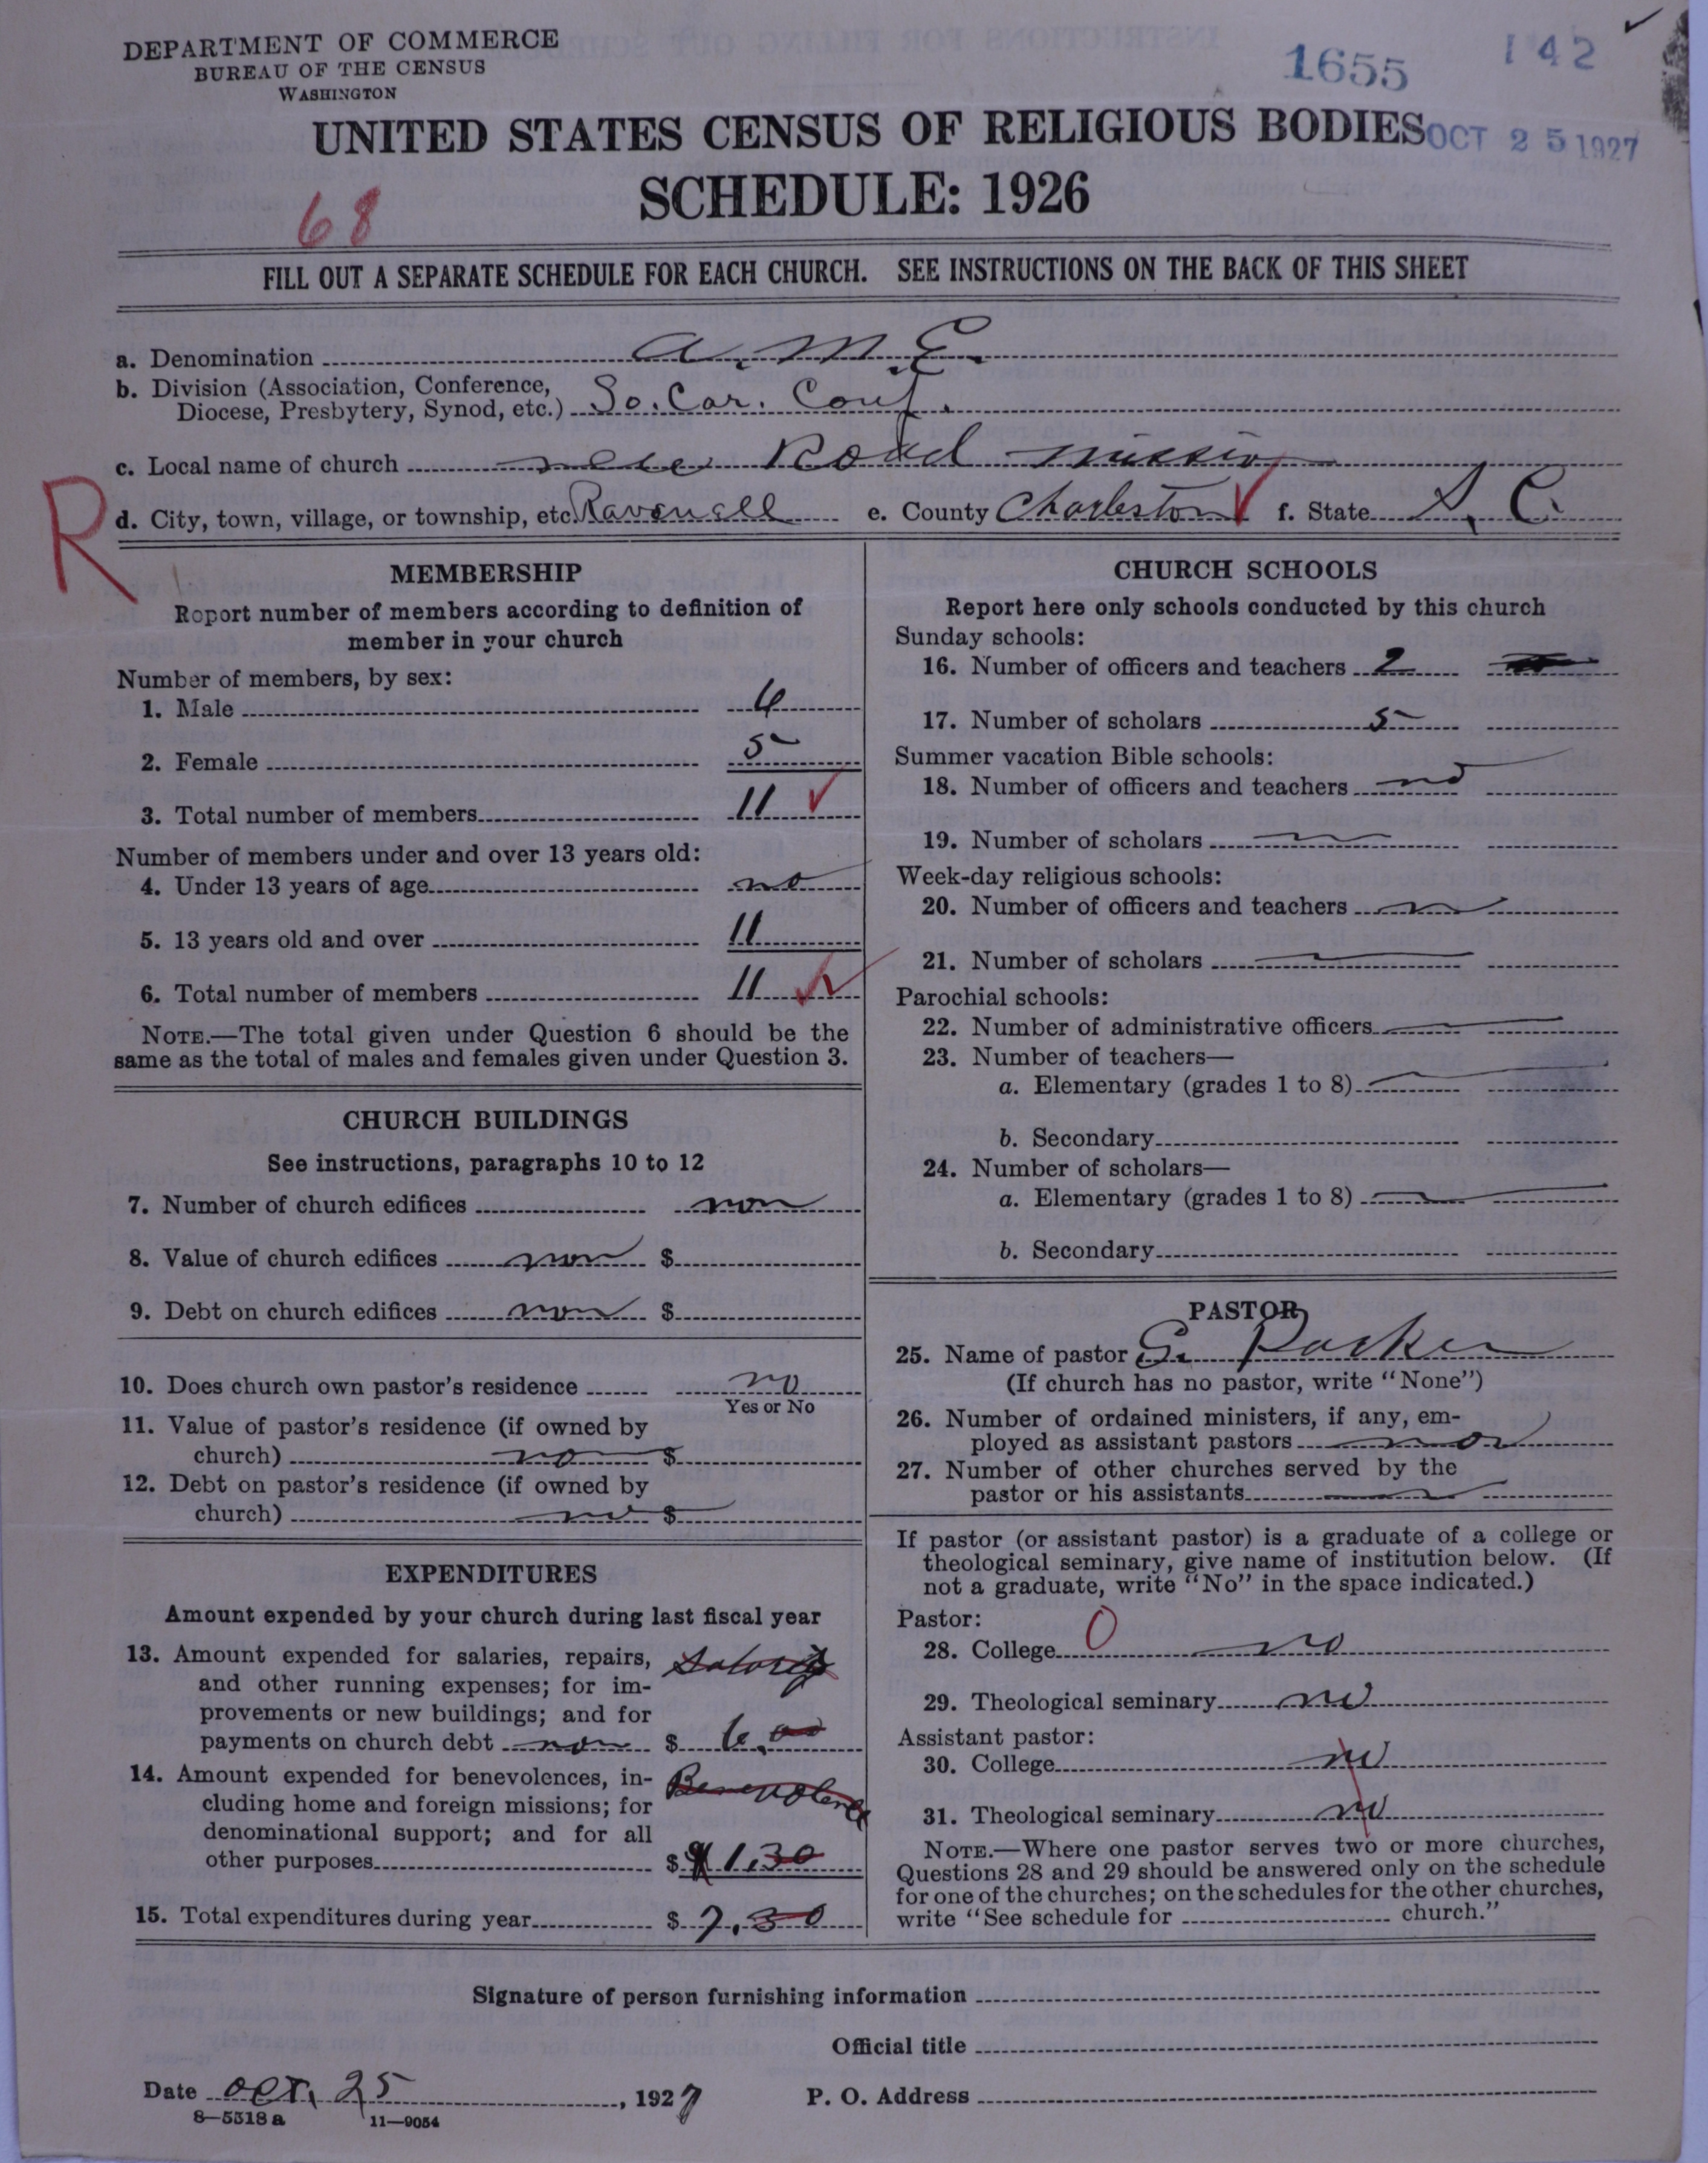 DEPARTMENT OF COMMERCE
BUREAU OF THE CENSUS
WASHINGTON
1655
142
UNITED STATES CENSUS OF RELIGIOUS BODIES
OCT 25 1927
SCHEDULE: 1926
68
FILL OUT A SEPARATE SCHEDULE FOR EACH CHURCH. SEE INSTRUCTIONS ON THE BACK OF THIS SHEET
a. Denomination A. M. E.
b. Division (Association, Conference,
Diocese, Presbytery, Synod, etc.) So. Car. Conf.
c. Local name of church New Road mission
R
d. City, town, village, or township, etc. Ravenell e. County Charleston f. State S. C.
MEMBERSHIP
Report number of members according to definition of
member in your church
Number of members, by sex:
1. Male 6
2. Female 5
3. Total number of members 11
Number of members under and over 13 years old:
4. Under 13 years of age no
5. 13 years old and over 11
6. Total number of members 11
NOTE.—The total given under Question 6 should be the
same as the total of males and females given under Question 3.
CHURCH BUILDINGS
See instructions, paragraphs 10 to 12
7. Number of church edifices non
8. Value of church edifices non $
9. Debt on church edifices non $
10. Does church own pastor's residence no
Yes or No
11. Value of pastor's residence (if owned by
church) no $
12. Debt on pastor's residence (if owned by
church) no $
EXPENDITURES
Amount expended by your church during last fiscal year
13. Amount expended for salaries, repairs,
and other running expenses; for im-
provements or new buildings; and for
payments on church debt non $ 6.00
14. Amount expended for benevolences, in- Benevolence
cluding home and foreign missions; for
denominational support; and for all
other purposes $ 1.30
15. Total expenditures during year $ 7.30
CHURCH SCHOOLS
Report here only schools conducted by this church
Sunday schools:
16. Number of officers and teachers 2
17. Number of scholars 5
Summer vacation Bible schools:
18. Number of officers and teachers no
19. Number of scholars
Week-day religious schools:
20. Number of officers and teachers
21. Number of scholars
Parochial schools:
22. Number of administrative officers
23. Number of teachers—
a. Elementary (grades 1 to 8)
b. Secondary
24. Number of scholars—
a. Elementary (grades 1 to 8)
b. Secondary
PASTOR
25. Name of pastor S. Parker
(If church has no pastor, write "None")
26. Number of ordained ministers, if any, em-
ployed as assistant pastors non
27. Number of other churches served by the
pastor or his assistants
If pastor (or assistant pastor) is a graduate of a college or
theological seminary, give name of institution below. (If
not a graduate, write "No" in the space indicated.)
Pastor:
28. College 0 no
29. Theological seminary no
Assistant pastor:
30. College no
31. Theological seminary no
NOTE.—Where one pastor serves two or more churches,
Questions 28 and 29 should be answered only on the schedule
for one of the churches; on the schedules for the other churches,
write "See schedule for church."
Signature of person furnishing information
Official title
Date Oct. 25, 1927 P. O. Address
8—5518 a 11—9054